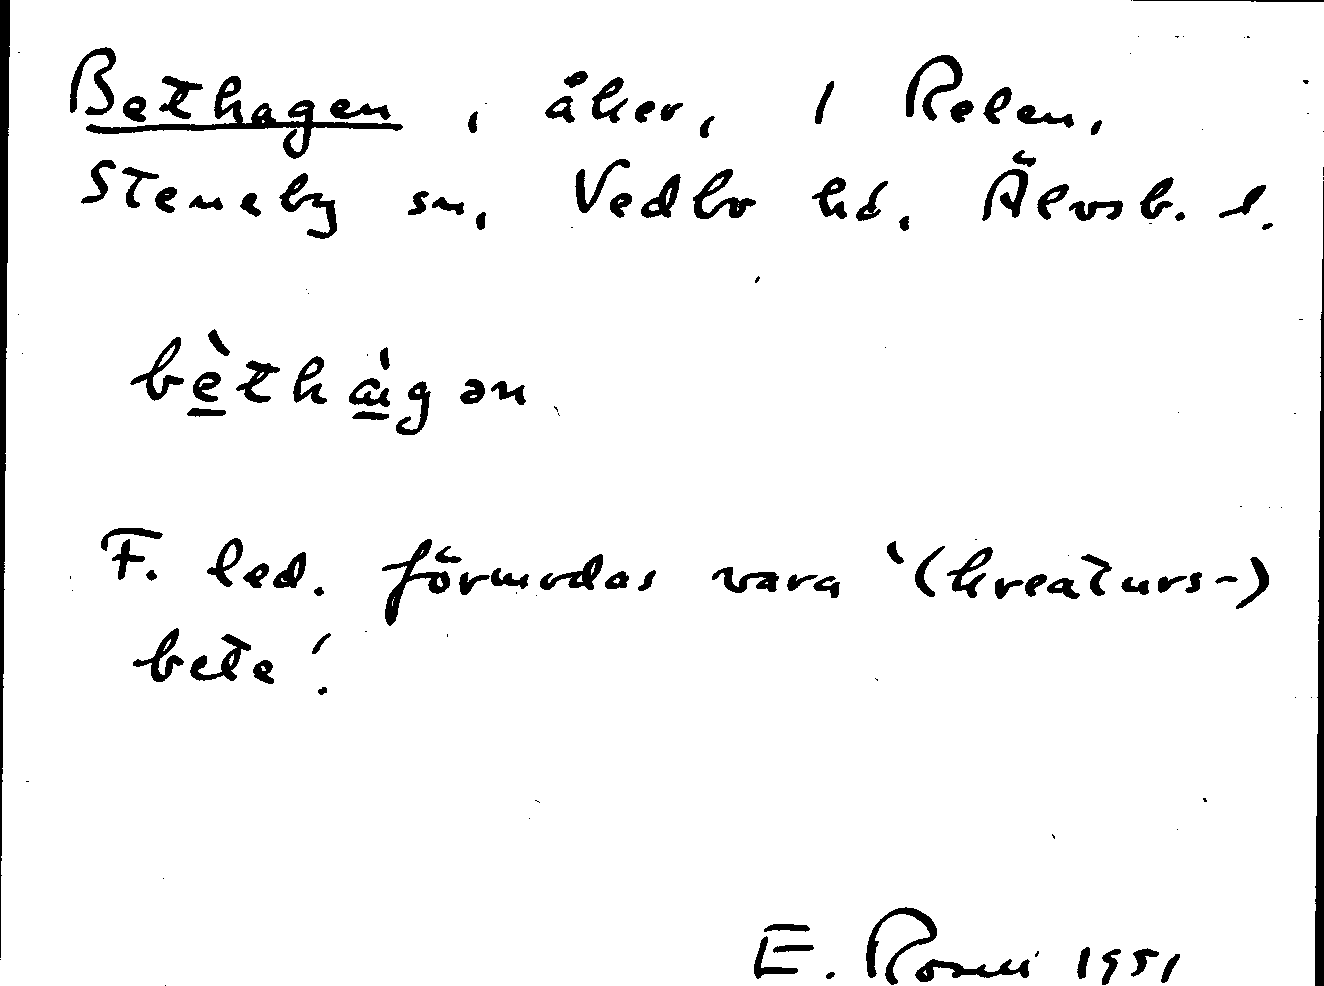 Bethagen, åker, 1 Relen,
Steneby sn, Vedbo hd, Älvsb. l.
bèthàgən
F. led. förmodas vara '(kreaturs-)
bete'.
E. 1951